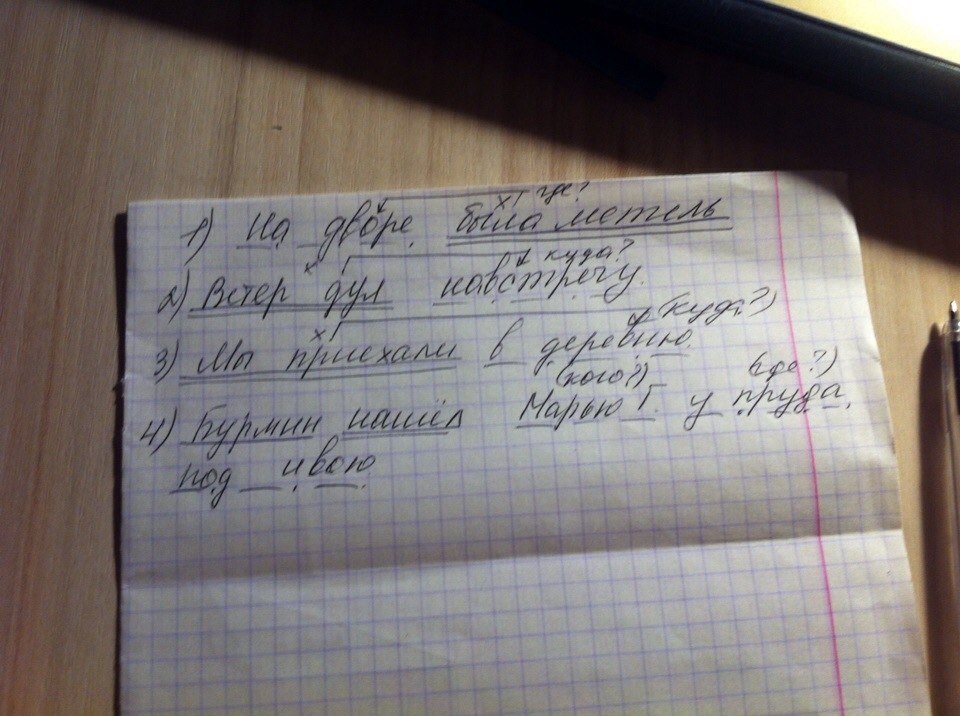 где?
1) На дворе была метель
куда?
2) Ветер дул навстречу.
(куда?)
3) Мы приехали в деревню.
(кого?) (где?)
4) Бурмин нашёл Марью Г. у пруда
под ивою